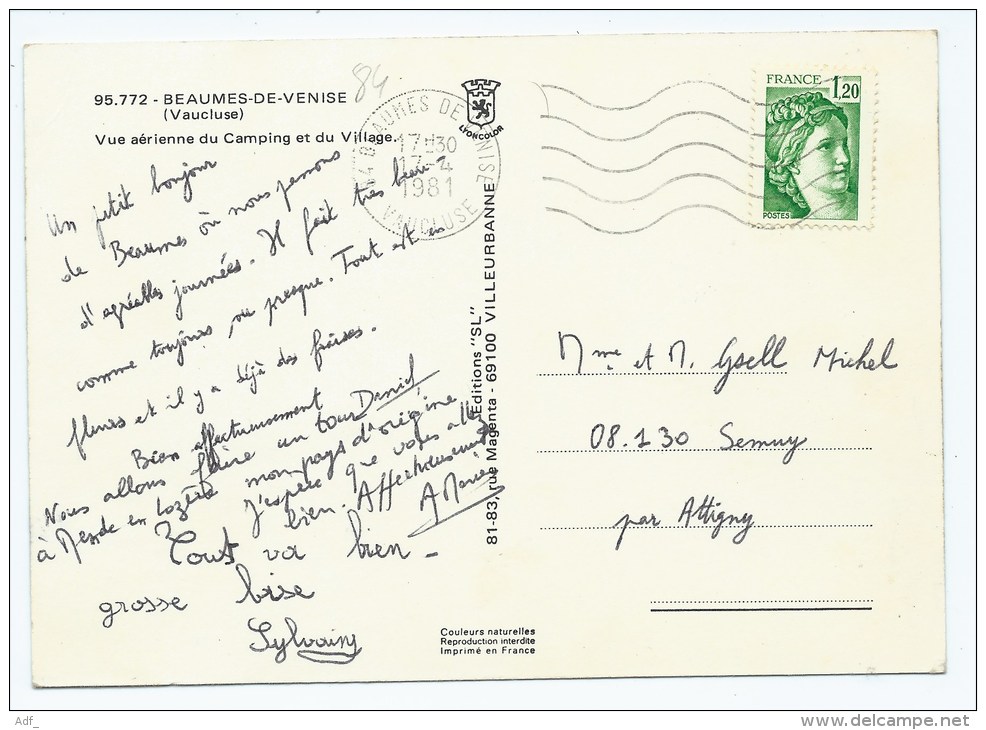 95.772 - BEAUMES-DE-VENISE
(Vaucluse)
Vue aérienne du Camping et du Village.
84
LYONCOLOR
84 BEAUMES DE VENISE
17H30
17-4
1981
VAUCLUSE
FRANCE 1,20
POSTES
Un petit bonjour
de Beaumes où nous passons
d'agréables journées. Il fait très beau
comme toujours ou presque. Tout est en
fleurs et il y a déjà des fraises.
Bien affectueusement
Daniel
Nous allons faire un tour
à Mende en Lozère mon pays d'origine
J'espère que vous allez
bien. Affectueusement
A Marie
Tout va bien -
grosse bise
Sylvain
Editions "SL"
81-83, rue Magenta - 69100 VILLEURBANNE
Mme et M. Gsell Michel
08.130 Semuy
par Attigny
Couleurs naturelles
Reproduction interdite
Imprimé en France
Adf_
delcampe.net